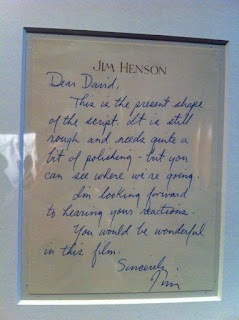 JIM HENSON
Dear David,
This is the present shape
of the script. It is still
rough and needs quite a
bit of polishing - but you
can see where we're going.
I'm looking forward
to hearing your reactions.
You would be wonderful
in this film.
Sincerely,
Jim